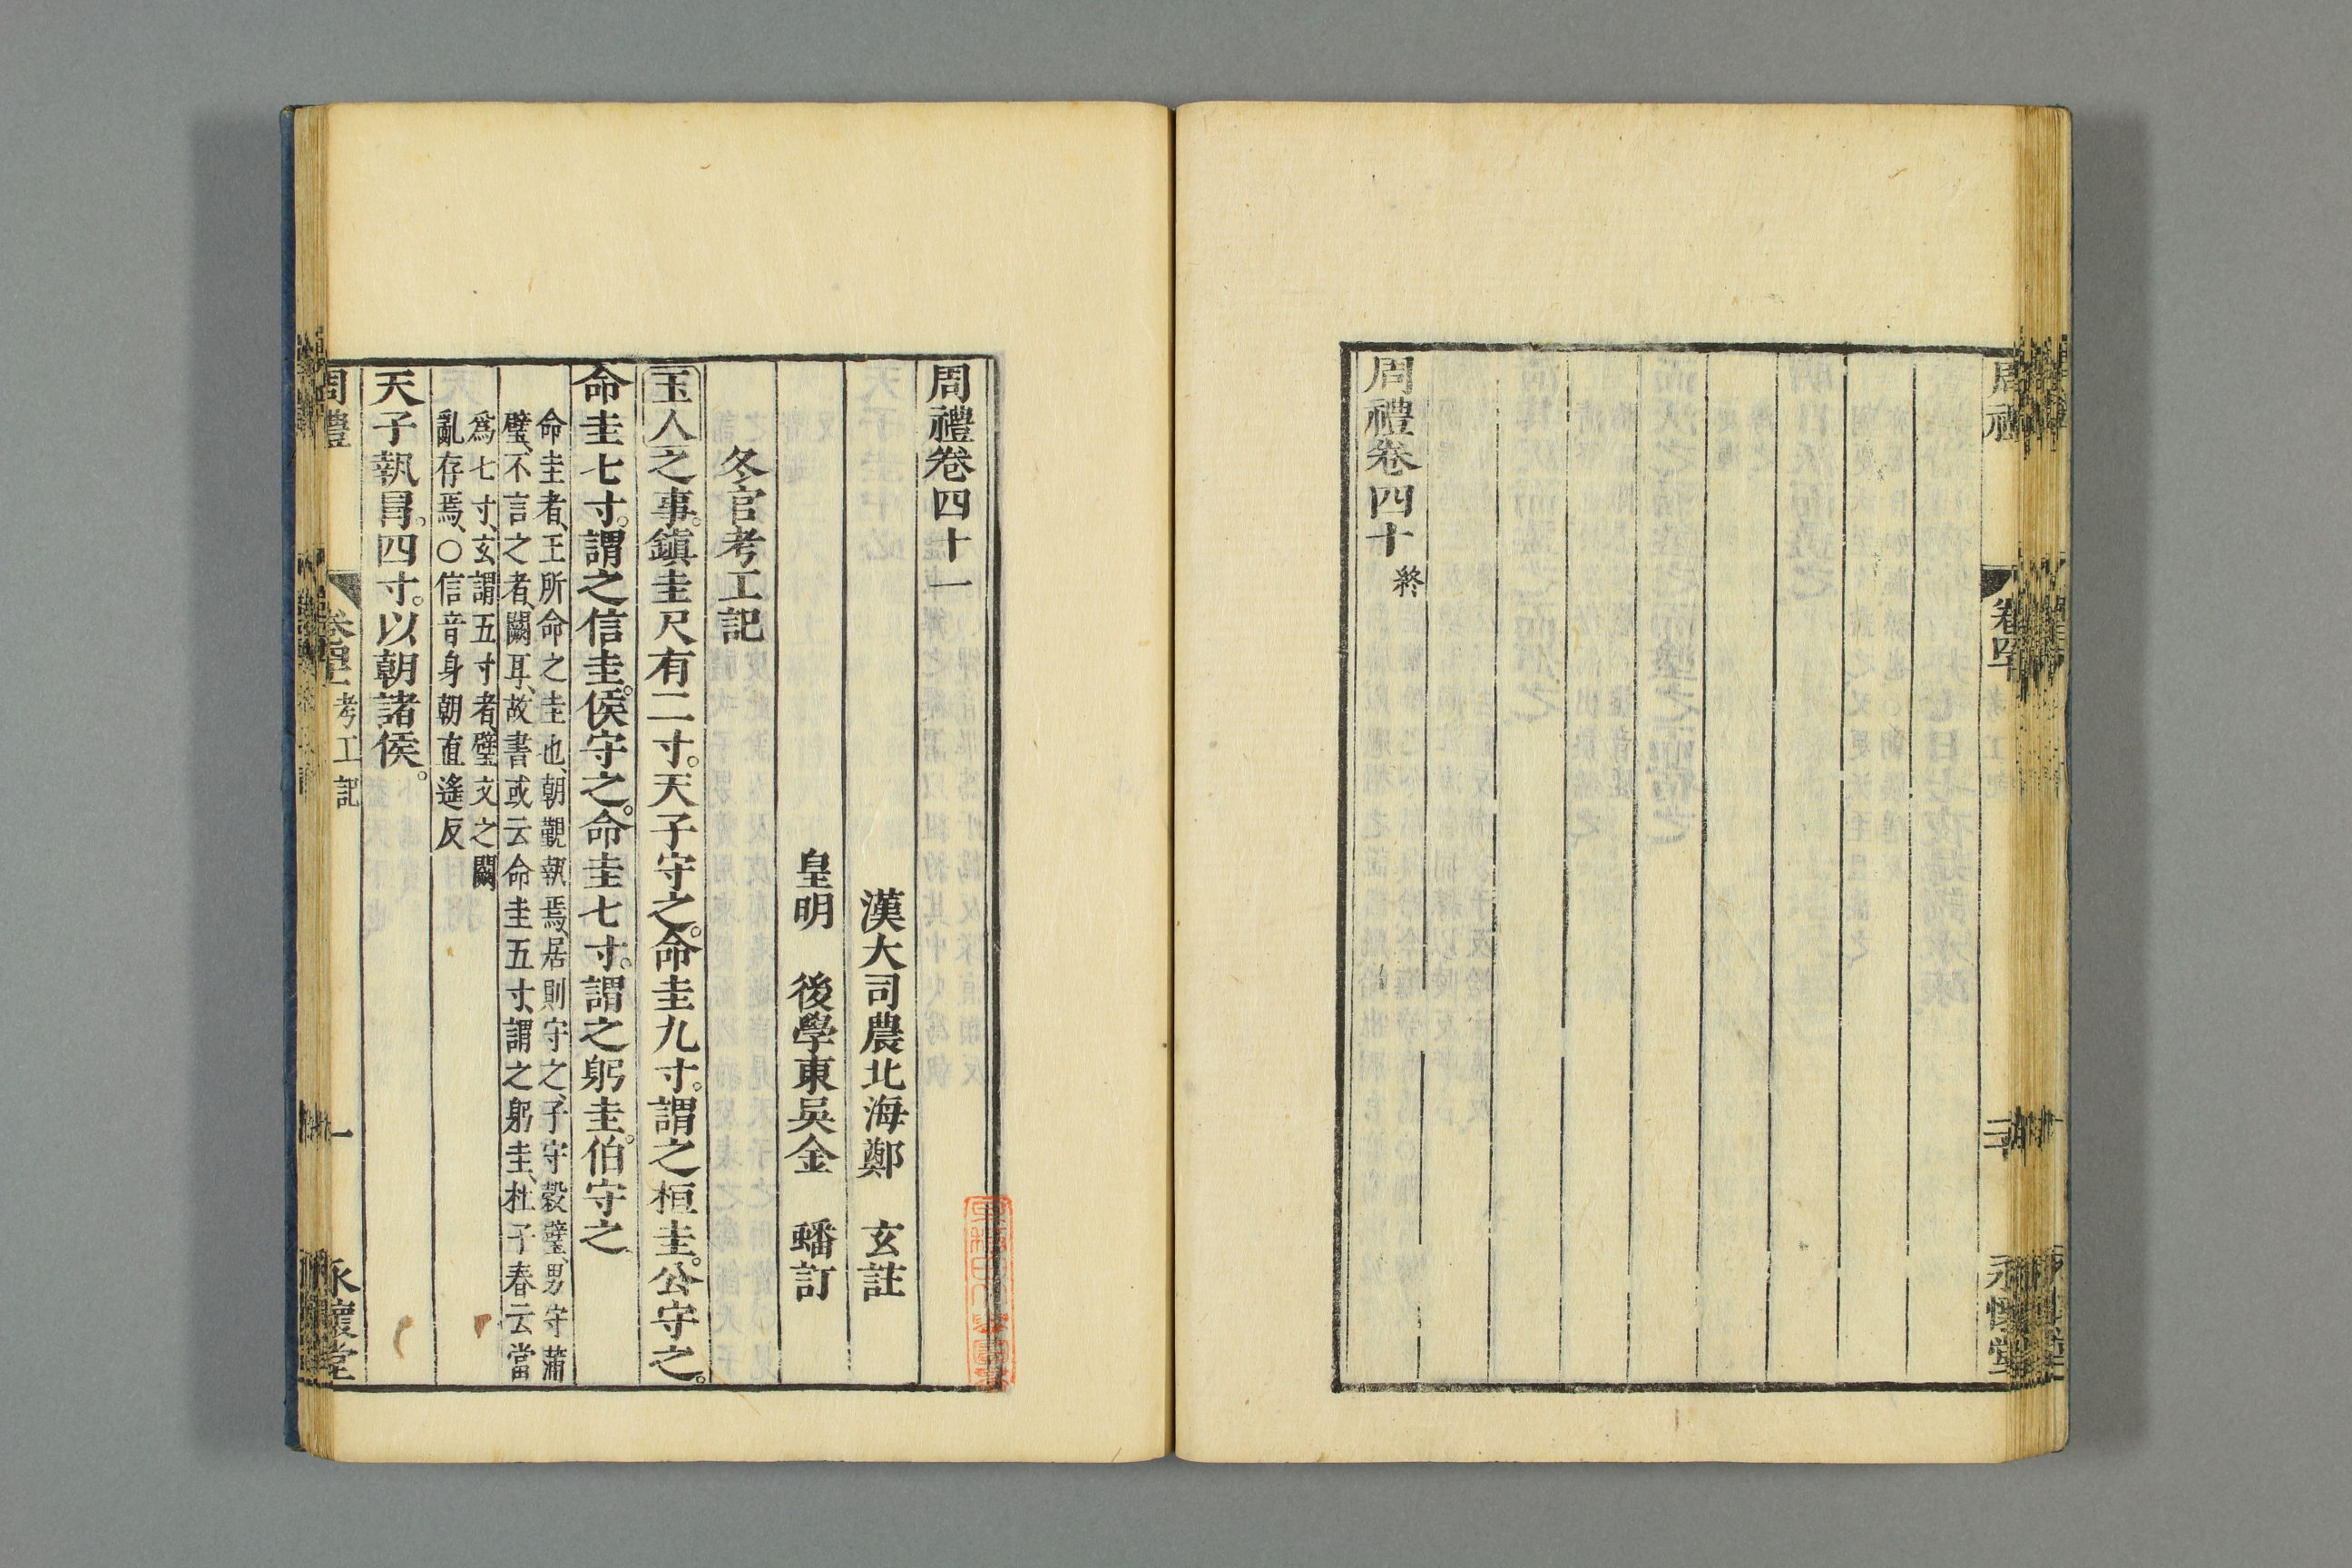 周禮
卷四十
三
永懷堂
周禮卷四十終
周禮卷四十一
漢大司農北海鄭　玄註
皇明　後學東吳金　蟠訂
冬官考工記
玉人之事。鎮圭尺有二寸。天子守之。命圭九寸。謂之桓圭。公守之。
命圭七寸。謂之信圭。侯守之。命圭七寸。謂之躬圭。伯守之
命圭者、王所命之圭也、朝覲執焉、居則守之、子守穀璧、男守蒲
璧、不言之者、闕耳、故書或云命圭五寸、謂之躬圭、杜子春云當
爲七寸、玄謂五寸者、璧文之闕
亂存焉、○信音身朝直遙反
天子執冒。四寸。以朝諸侯。
周禮
卷四十一
考工記
一
永懷堂